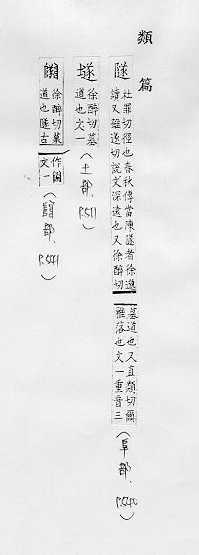 類篇
隧
杜罪切徑也春秋傳當陳隧者徐邈
讀又雖遂切說文深遠也又徐醉切
墓道也又直類切爾
雅落也文一重音三
(阜部, P.540)
徐醉切墓
道也文一
(土部, P.511)
徐醉切墓
道也隧古
作
文一
(部, P.541)